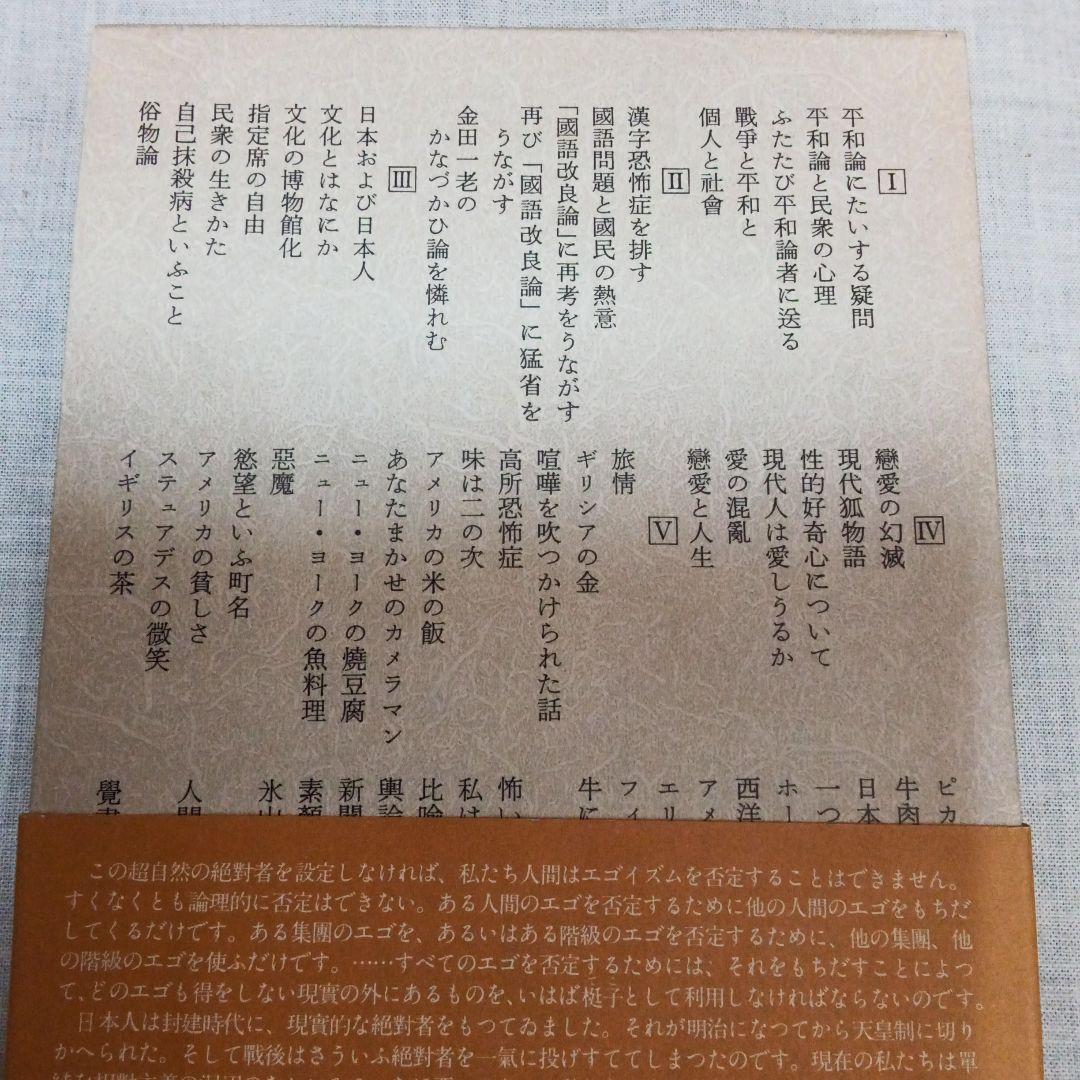 I
平和論にたいする疑問
平和論と民衆の心理
ふたたび平和論者に送る
戰爭と平和と
個人と社會
II
漢字恐怖症を排す
國語問題と國民の熱意
「國語改良論」に再考をうながす
再び「國語改良論」に猛省を
うながす
金田一老の
かなづかひ論を憐れむ
III
日本および日本人
文化とはなにか
文化の博物館化
指定席の自由
民衆の生きかた
自己抹殺病といふこと
俗物論
IV
戀愛の幻滅
現代狐物語
性的好奇心について
現代人は愛しうるか
愛の混亂
戀愛と人生
V
旅情
ギリシアの金
喧嘩を吹つかけられた話
高所恐怖症
味は二の次
アメリカの米の飯
あなたまかせのカメラマン
ニュー・ヨークの燒豆腐
ニュー・ヨークの魚料理
惡魔
慾望といふ町名
アメリカの貧しさ
ステュアデスの微笑
イギリスの茶
ピカ
牛肉
日本
一つ
ホー
西洋
アメ
エリ
フィ
牛に
怖い
私は
比喩
輿論
新聞
素顏
氷山
人間
覺書
この超自然の絕對者を設定しなければ、私たち人間はエゴイズムを否定することはできません。
すくなくとも論理的に否定はできない。ある人間のエゴを否定するために他の人間のエゴをもちだ
してくるだけです。ある集團のエゴを、あるいはある階級のエゴを否定するために、他の集團、他
の階級のエゴを使ふだけです。……すべてのエゴを否定するためには、それをもちだすことによつ
て、どのエゴも得をしない現實の外にあるものを、いはば梃子として利用しなければならないのです。
日本人は封建時代に、現實的な絕對者をもつてゐました。それが明治になつてから天皇制に切り
かへられた。そして戰後はさういふ絕對者を一氣に投げすててしまつたのです。現在の私たちは單